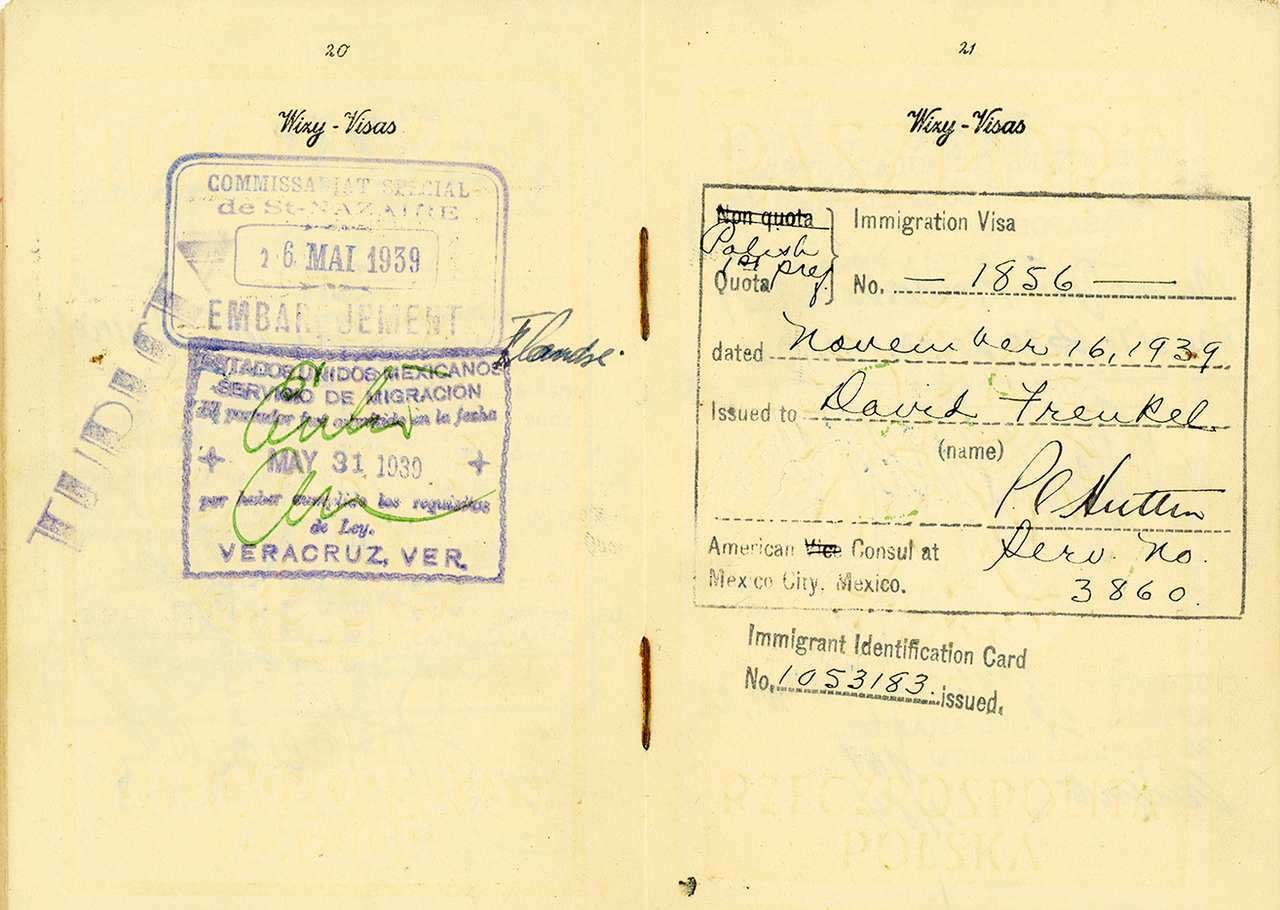 20
Wizy - Visas
COMMISSARIAT SPECIAL
de St-NAZAIRE
26 MAI 1939
EMBARQUEMENT
Flandre.
ESTADOS UNIDOS MEXICANOS
SERVICIO DE MIGRACION
El portador fué admitido en la fecha
MAY 31 1939
por haber cumplido los requisitos
de Ley.
VERACRUZ, VER.
21
Wizy - Visas
Non quota
Immigration Visa
Polish
1st pref
Quota
No. — 1856 —
dated November 16, 1939
Issued to David Frenkel
(name)
American Vice Consul at
Serv. No.
Mexico City, Mexico.
3860.
Immigrant Identification Card
No. 1053183. issued.
RZECZPOSPOLITA
POLSKA